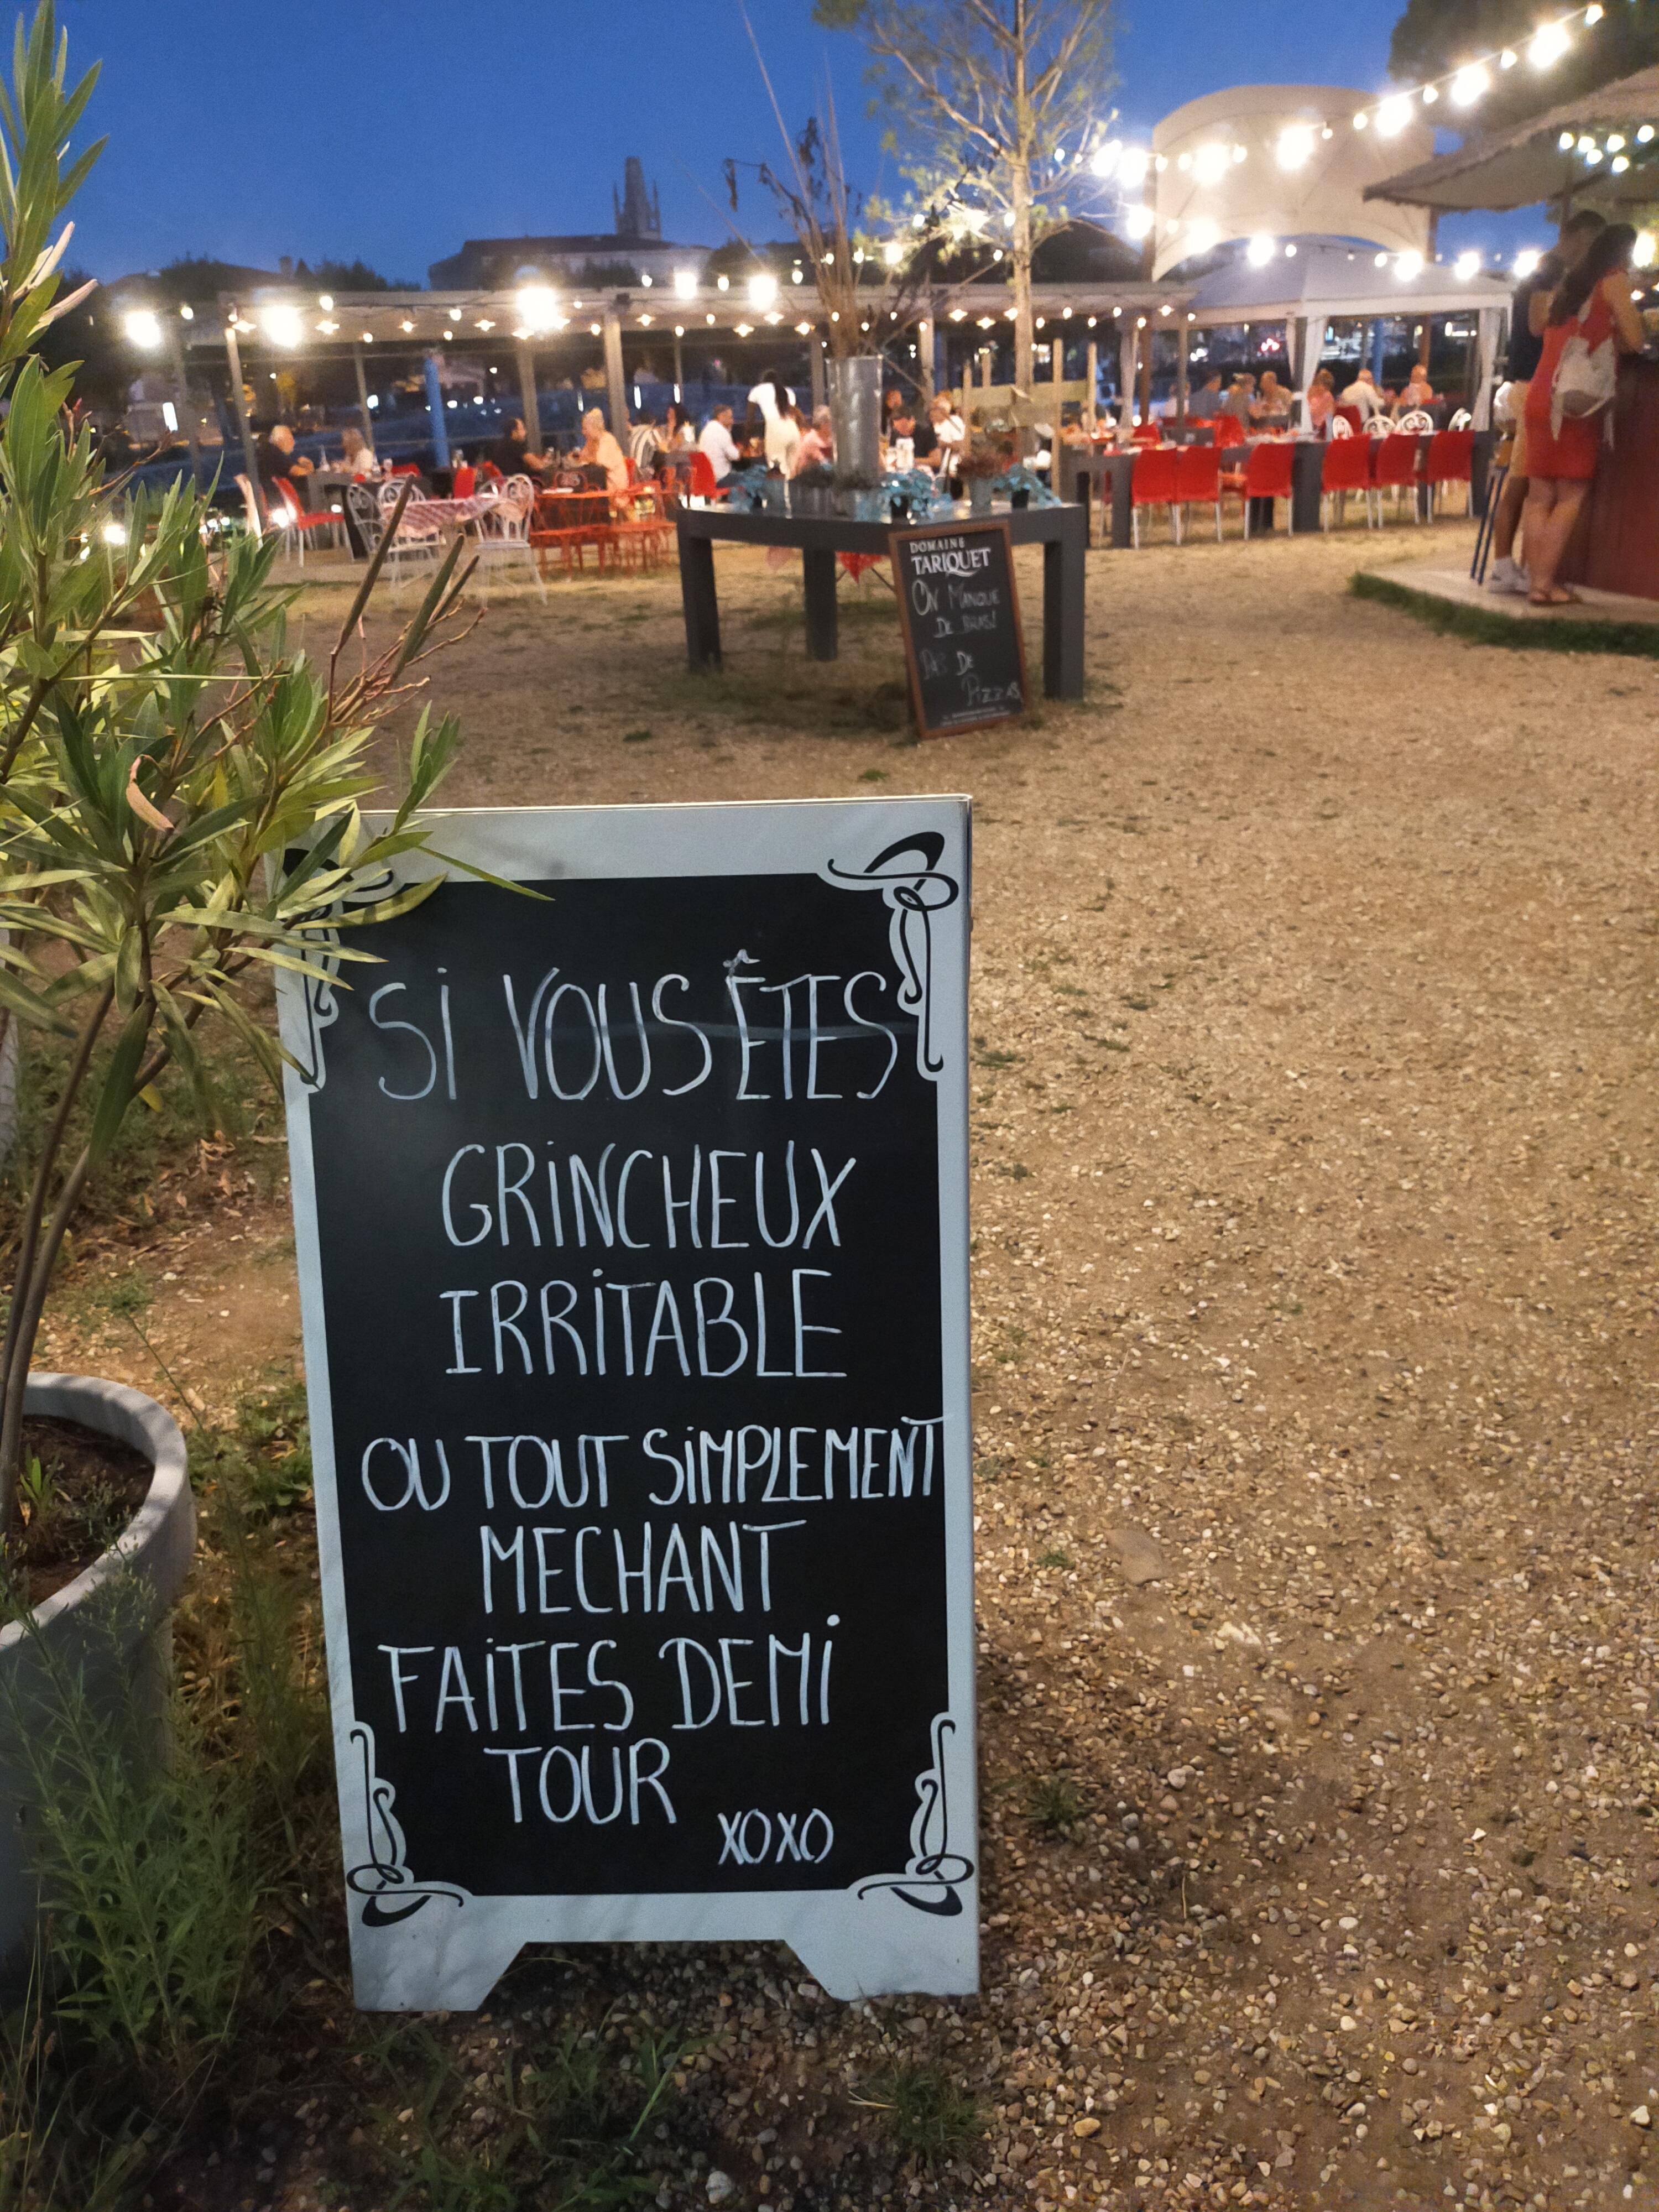 DOMAINE
TARIQUET
ON MANQUE
DE BRAS!
PAS DE
PIZZAS
SI VOUS ÊTES
GRINCHEUX
IRRITABLE
OU TOUT SIMPLEMENT
MECHANT
FAITES DEMI
TOUR
XOXO